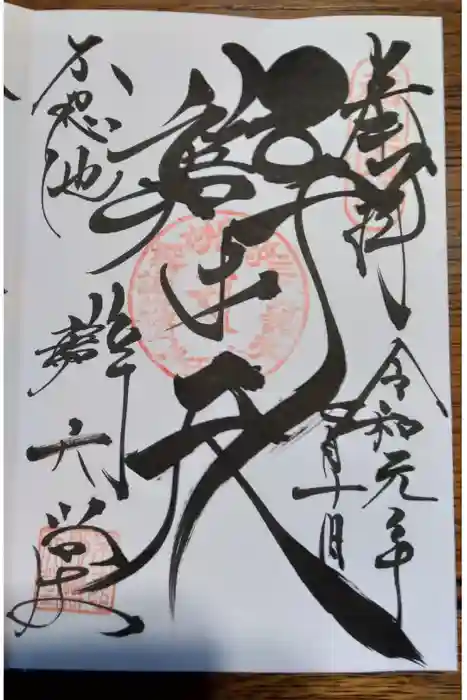 奉拝
令和元年
五月十日
辯才天
不忍池
辯天堂